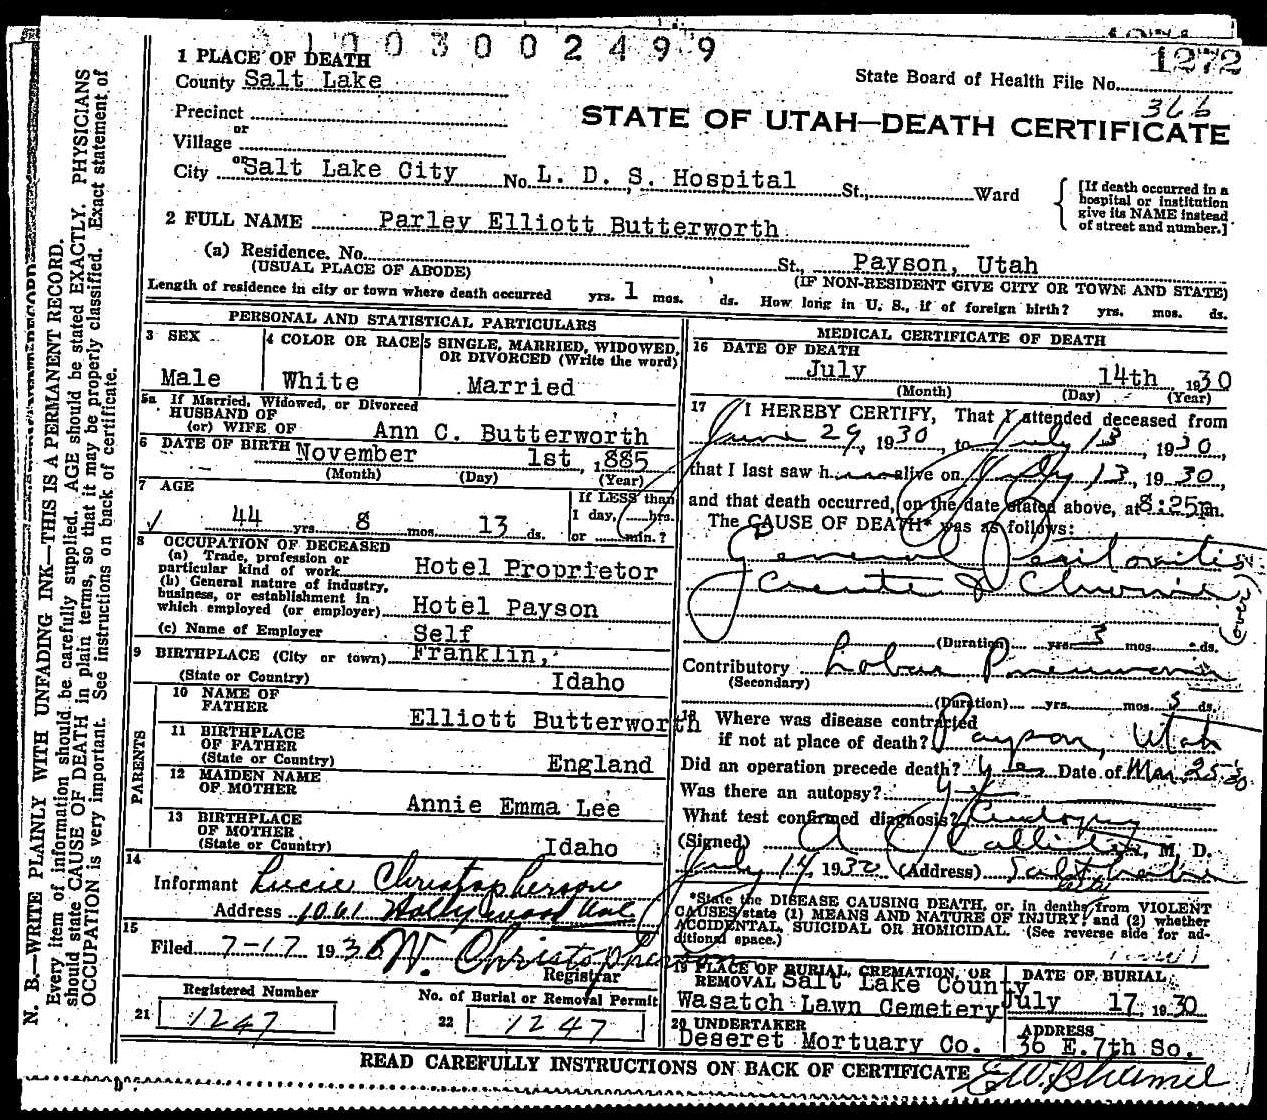 1003002499
1272
State Board of Health File No.
366
1 PLACE OF DEATH
County Salt Lake
Precinct
or
Village
or
City Salt Lake City No. L. D. S. Hospital St., Ward
STATE OF UTAH—DEATH CERTIFICATE
[If death occurred in a
hospital or institution
give its NAME instead
of street and number.]
2 FULL NAME Parley Elliott Butterworth
(a) Residence. No. St., Payson, Utah
(USUAL PLACE OF ABODE) (IF NON-RESIDENT GIVE CITY OR TOWN AND STATE)
Length of residence in city or town where death occurred yrs. 1 mos. ds. How long in U. S., if of foreign birth? yrs. mos. ds.
PERSONAL AND STATISTICAL PARTICULARS
3 SEX
Male
4 COLOR OR RACE
White
5 SINGLE, MARRIED, WIDOWED,
OR DIVORCED (Write the word)
Married
5a If Married, Widowed, or Divorced
HUSBAND OF
(or) WIFE OF Ann C. Butterworth
6 DATE OF BIRTH November 1st, 1885
(Month) (Day) (Year)
7 AGE
44 yrs. 8 mos. 13 ds.
If LESS than
1 day, hrs.
or min.?
8 OCCUPATION OF DECEASED
(a) Trade, profession or
particular kind of work Hotel Proprietor
(b) General nature of industry,
business, or establishment in
which employed (or employer) Hotel Payson
(c) Name of Employer Self
9 BIRTHPLACE (City or town) Franklin,
(State or Country) Idaho
PARENTS
10 NAME OF
FATHER Elliott Butterworth
11 BIRTHPLACE
OF FATHER
(State or Country) England
12 MAIDEN NAME
OF MOTHER Annie Emma Lee
13 BIRTHPLACE
OF MOTHER
(State or Country) Idaho
14
Informant Lucie Christopherson
Address 1061 Hollywood Ave
15
Filed 7-17 1930 W. Christopherson
Registrar
Registered Number
21 1247
No. of Burial or Removal Permit
22 1247
MEDICAL CERTIFICATE OF DEATH
16 DATE OF DEATH
July 14th 1930
(Month) (Day) (Year)
17 I HEREBY CERTIFY, That I attended deceased from
June 29, 1930, to July 13, 1930,
that I last saw h alive on July 13, 1930,
and that death occurred, on the date stated above, at 8:25p m.
The CAUSE OF DEATH* was as follows:
General Peritonitis
Acute & Chronic
(over)
(Duration) yrs. 3 mos. ds.
Contributory Lobar Pneumonia
(Secondary)
(Duration) yrs. mos. 5 ds.
18 Where was disease contracted
if not at place of death? Payson, Utah
Did an operation precede death? yes Date of Mar 25 30
Was there an autopsy? yes
What test confirmed diagnosis?
(Signed) M. D.
July 14, 1930 (Address) Salt Lake
*State the DISEASE CAUSING DEATH, or, in deaths from VIOLENT
CAUSES state (1) MEANS AND NATURE OF INJURY; and (2) whether
ACCIDENTAL, SUICIDAL OR HOMICIDAL. (See reverse side for ad-
ditional space.)
19 PLACE OF BURIAL, CREMATION, OR
REMOVAL Salt Lake County
Wasatch Lawn Cemetery
DATE OF BURIAL
July 17, 1930
20 UNDERTAKER
Deseret Mortuary Co.
ADDRESS
36 E. 7th So.
READ CAREFULLY INSTRUCTIONS ON BACK OF CERTIFICATE
N. B.—WRITE PLAINLY WITH UNFADING INK—THIS IS A PERMANENT RECORD.
Every item of information should be carefully supplied. AGE should be stated EXACTLY. PHYSICIANS
should state CAUSE OF DEATH in plain terms, so that it may be properly classified. Exact statement of
OCCUPATION is very important. See instructions on back of certificate.